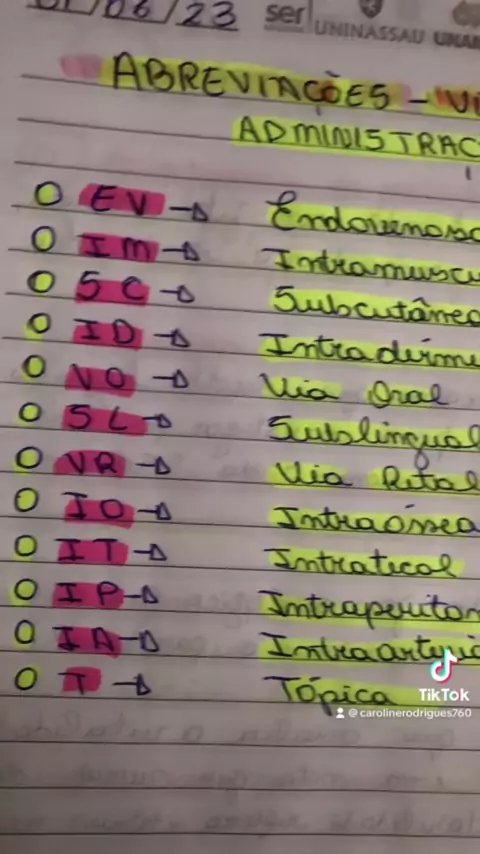 /06/23 ser UNINASSAU
ABREVIAÇÕES - Vi
ADMINISTRAÇ
EV → Endovenoso
IM → Intramuscu
SC → Subcutâneo
ID → Intradérme
VO → Via Oral
SL → Sublingual
VR → Via Retal
IO → Intraóssea
IT → Intratecal
IP → Intraperiton
IA → Intraarteria
T → Tópica
TikTok
@carolinerodrigues760